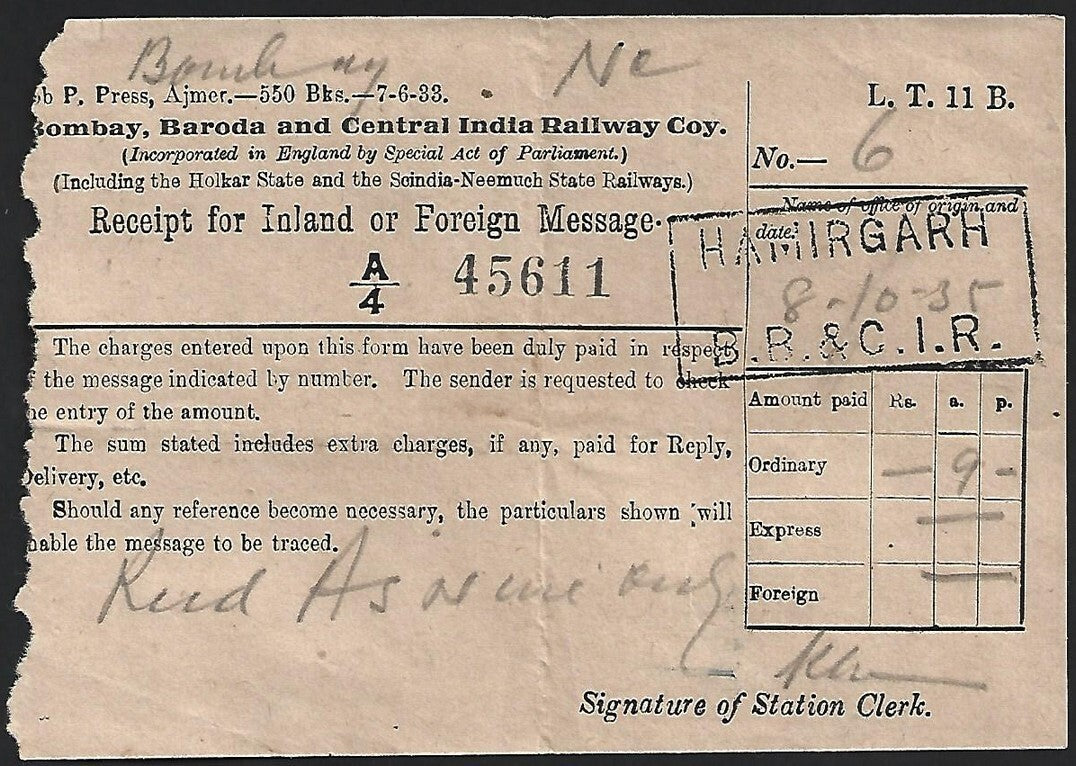 Bombay Ne
ob P. Press, Ajmer.—550 Bks.—7-6-33.
L. T. 11 B.
Bombay, Baroda and Central India Railway Coy.
(Incorporated in England by Special Act of Parliament.)
No.— 6
(Including the Holkar State and the Scindia-Neemuch State Railways.)
Receipt for Inland or Foreign Message.
Name of office of origin and
date.
HAMIRGARH
A/4 45611
8-10-35
B.B.&C.I.R.
The charges entered upon this form have been duly paid in respect
f the message indicated by number. The sender is requested to check
he entry of the amount.
The sum stated includes extra charges, if any, paid for Reply,
Delivery, etc.
Should any reference become necessary, the particulars shown will
nable the message to be traced.
Amount paid Rs. a. p.
Ordinary — 9 -
Express —
Foreign —
Recd As nine only
Signature of Station Clerk.